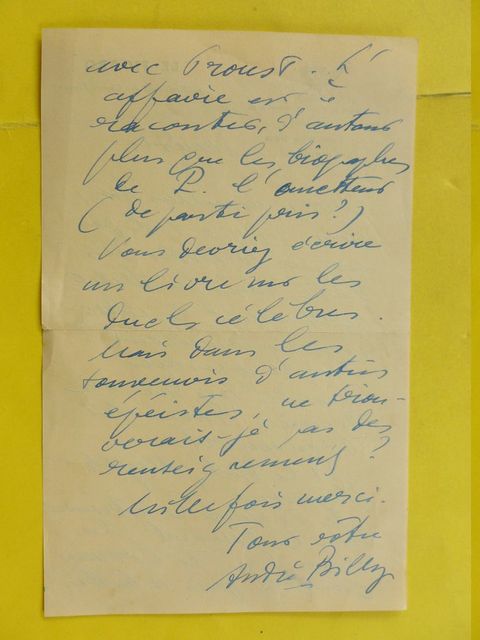 avec Proust. L'
affaire est à
raconter, d'autant
plus que les biographes
de P. l'omettent
(de parti pris?)
Vous devriez écrire
un livre sur les
duels célèbres.
Mais dans les
souvenirs d'autres
épéistes, ne trou-
verais-je pas des
renseignements?
Mille fois merci.
Tout vôtre
André Billy